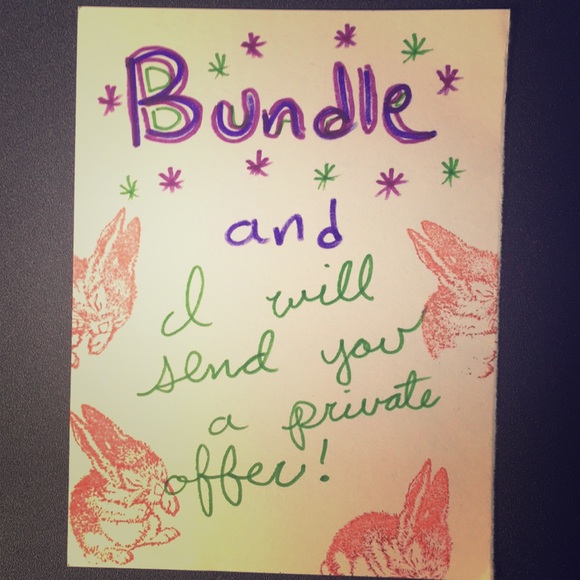 Bundle
and
I will
send you
a private
offer!